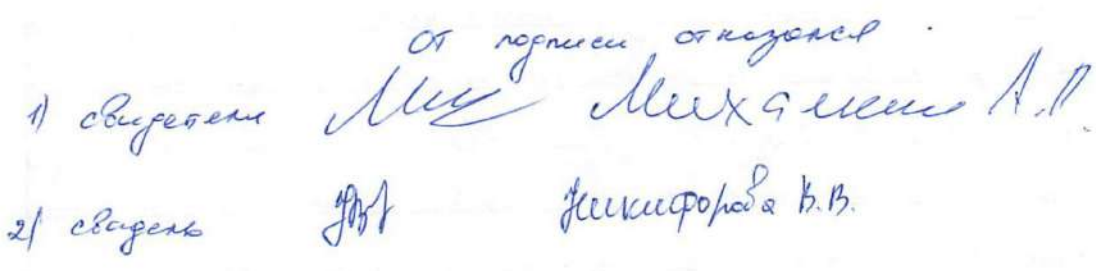 от подписи отказался.
1) свидетели Михалкин А.П.
2) свидень Никифорова В.В.